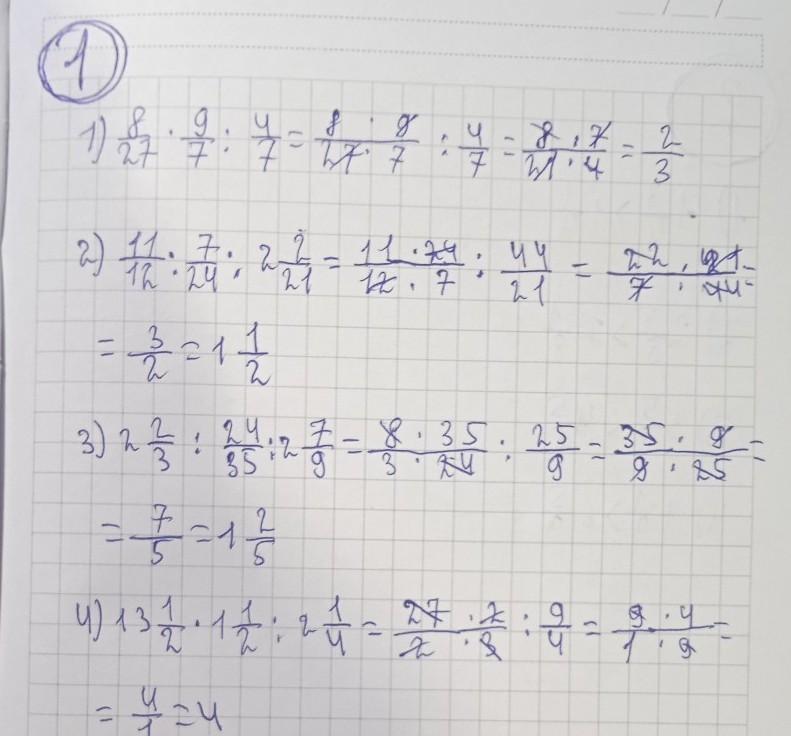 1
1) 8/27 · 9/7 : 4/7 = 8 · 9/27 · 7 : 4/7 = 8 · 7/21 · 4 = 2/3
2) 11/12 : 7/24 : 2 2/21 = 11 · 24/12 · 7 : 44/21 = 22 · 21/7 · 44 =
= 3/2 = 1 1/2
3) 2 2/3 : 24/35 : 2 7/9 = 8 · 35/3 · 24 : 25/9 = 35 · 9/9 · 25 =
= 7/5 = 1 2/5
4) 13 1/2 · 1 1/2 : 2 1/4 = 27 · 2/2 · 3 : 9/4 = 9 · 4/1 · 9 =
= 4/1 = 4